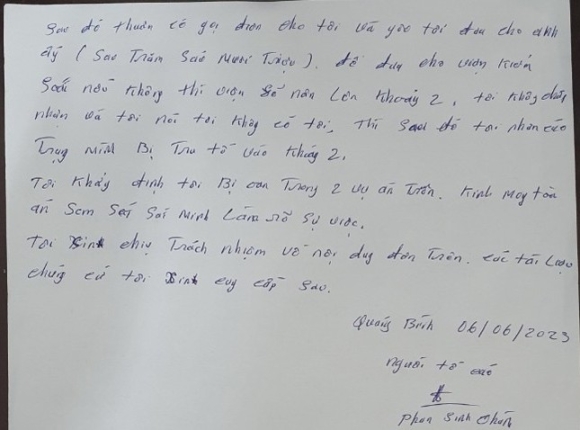 Sao đó thuân có gọi điện cho tôi và yêc tôi đưa cho anh
ấy ( Sáo Trăm Sáo Mươi Triệu ). để đưa cho viện Kiểm
Soát nếu không thì viện Sẽ nân Lên Khoảy 2, tôi không chấp
nhận và tôi nói tôi không có tội, Thì Sau đó tôi nhận cáo
Trạg mình Bị Truy tố vào Khảy 2.
Tôi Khảg định tôi Bị oan Trong 2 vụ án trên. Kính Moy tòa
án Sem Seť Sát Minh Làm rõ Sự việc.
Tôi Xinh chịu Trách nhiệm về nội dug đơn Trên. các tài Liệu
chứg cứ tôi Xinh cug cấp Sao.
Quảg Bình 06/06/2023
Người tố cáo
Phan Sinh